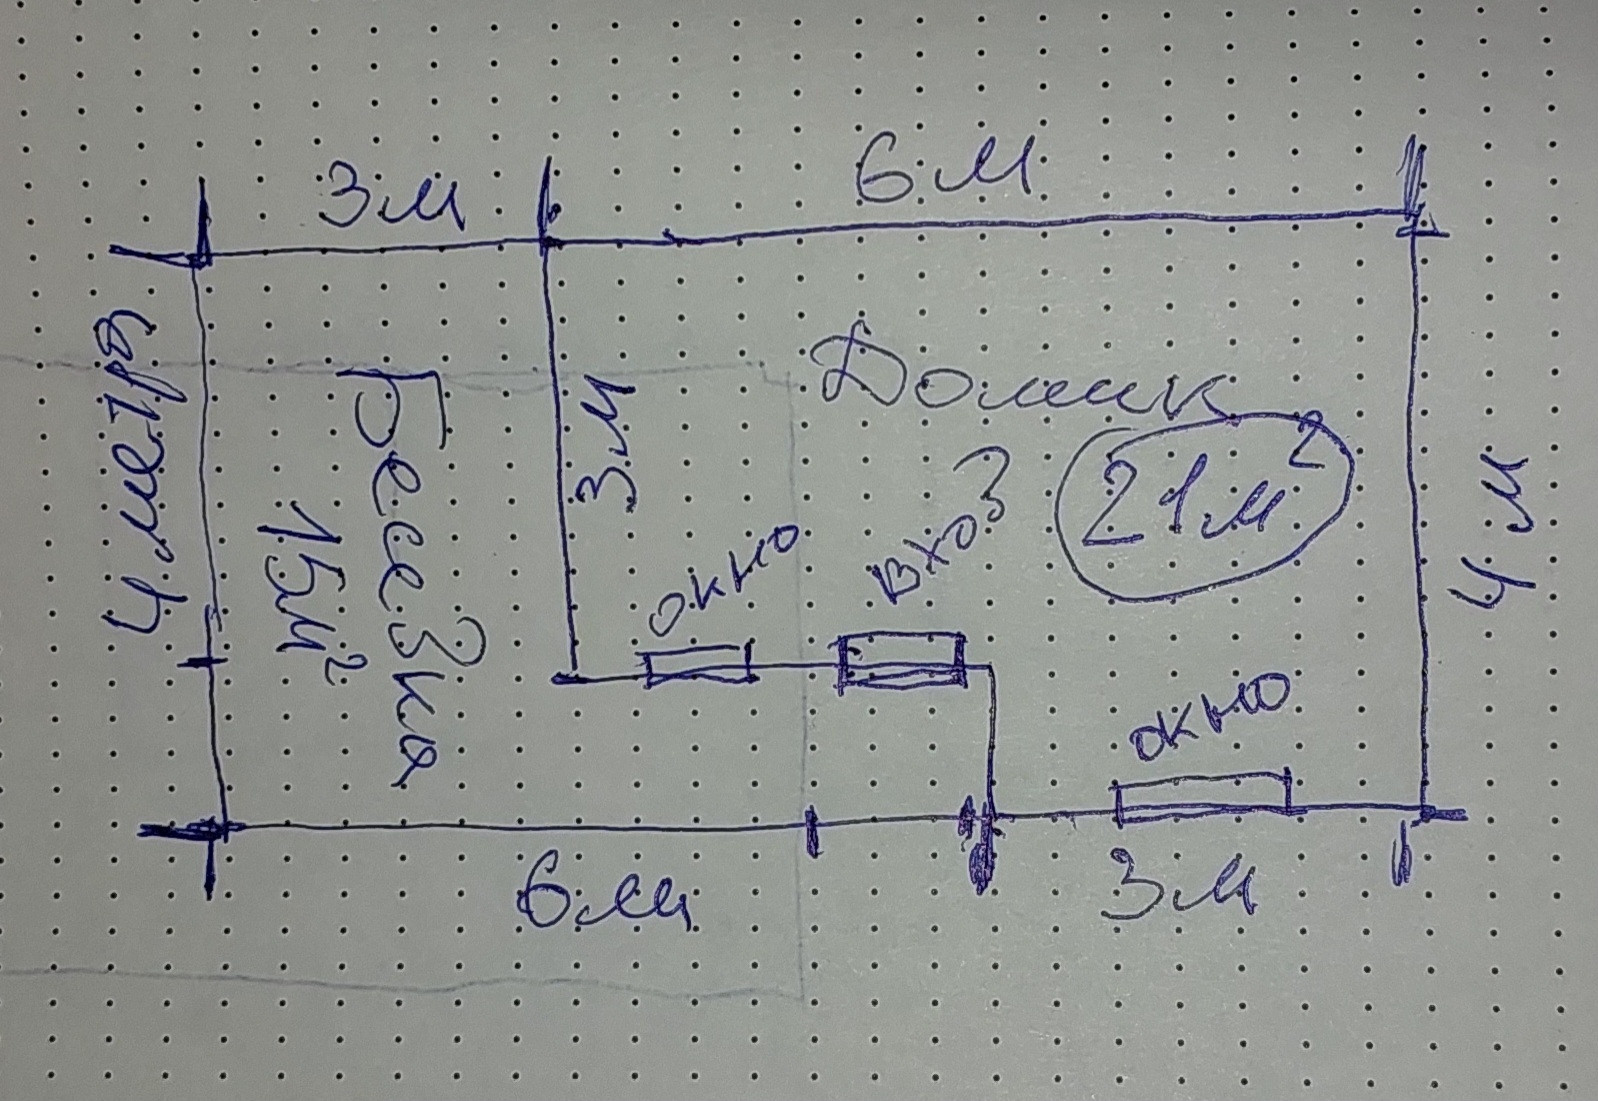 3м
6м
4 метра
Беседка
15м²
3м
Домик
21м²
4 м
окно
вход
окно
6м
3м